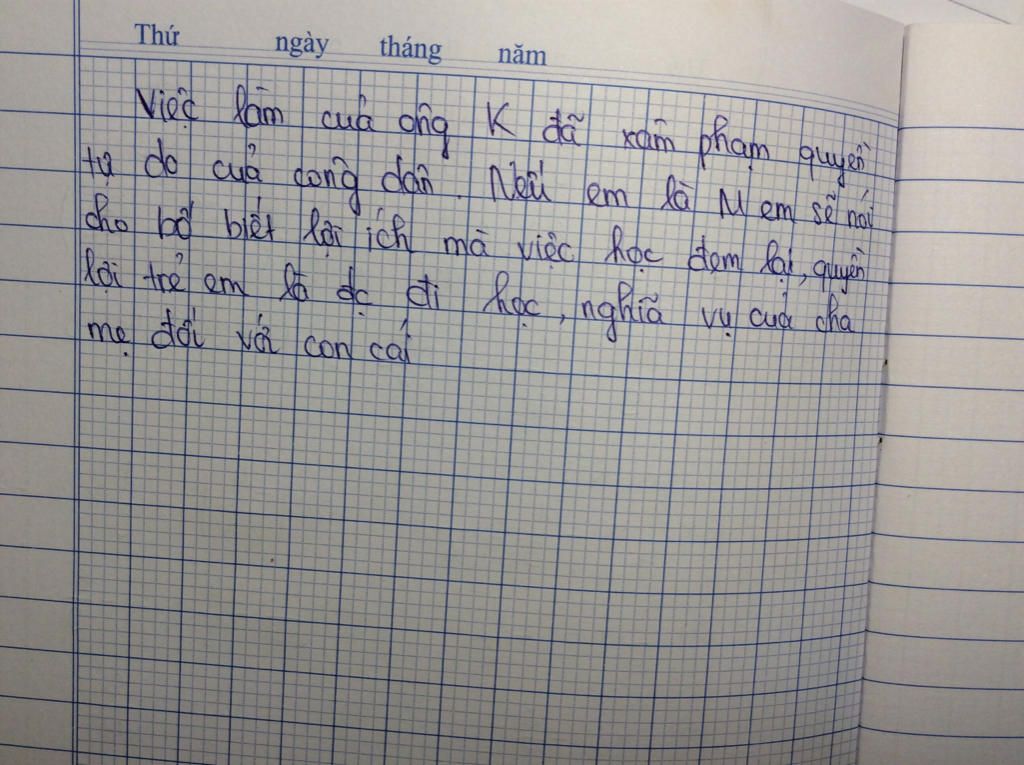 Thứ ngày tháng năm
Việc làm của ông K đã xâm phạm quyền
tự do của công dân. Nếu em là M em sẽ nói
cho bố biết lợi ích mà việc học đem lại, quyền
lợi trẻ em là đc đi học, nghĩa vụ của cha
mẹ đối với con cái